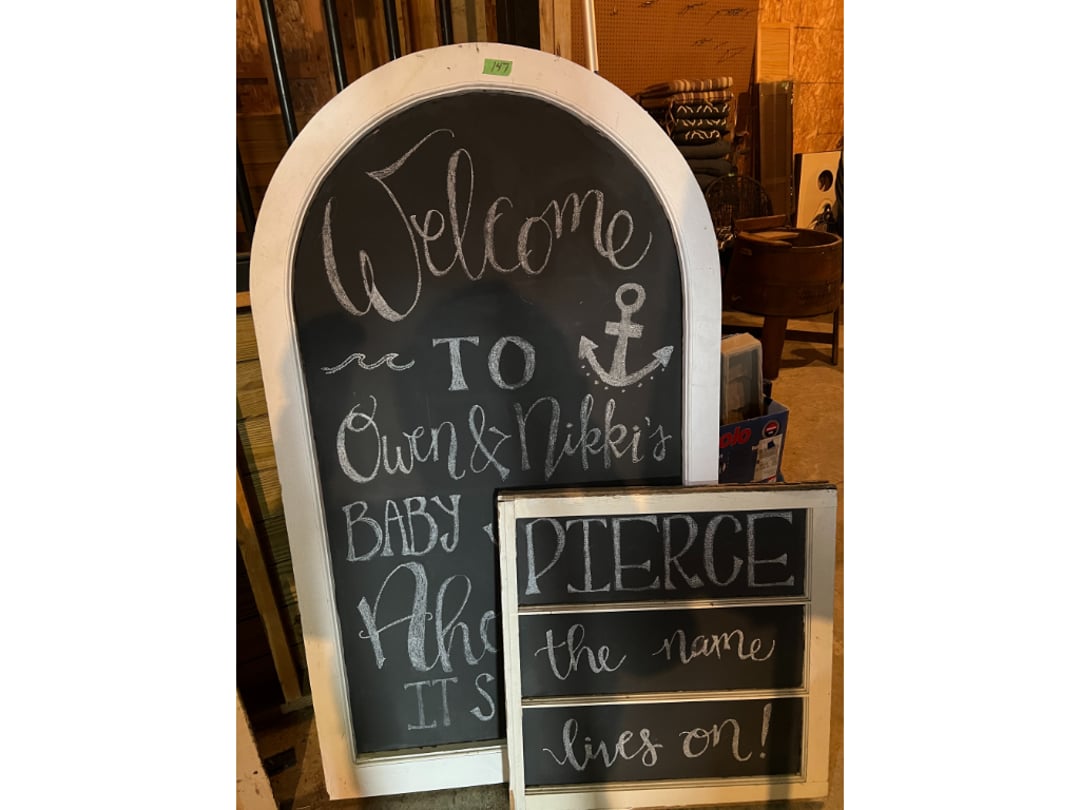 147
Welcome
TO
Owen & Nikki's
BABY
IT'S
PIERCE
the name
lives on!